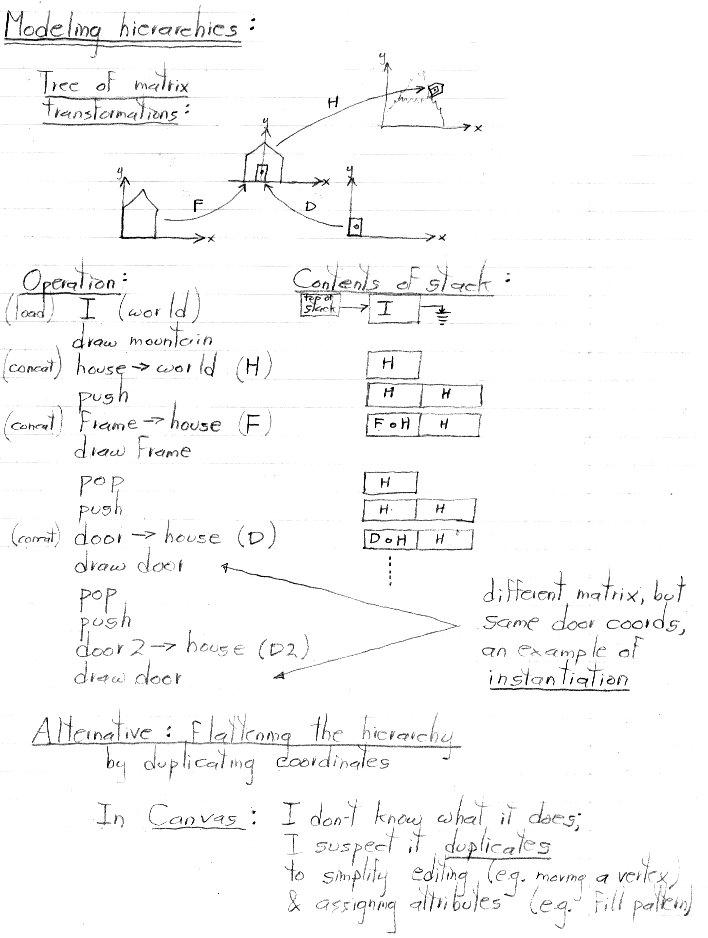 Modeling hierarchies:
Tree of matrix
transformations:
y
x
H
y
x
y
x
F
D
y
x
Operation:
Contents of stack:
(load) I (world)
top of
stack
I
draw mountain
(concat) house → world (H)
H
push
H H
(concat) Frame → house (F)
F∘H H
draw Frame
pop
H
push
H H
(concat) door → house (D)
D∘H H
draw door
pop
push
door 2 → house (D2)
draw door
different matrix, but
same door coords,
an example of
instantiation
Alternative: Flattening the hierarchy
by duplicating coordinates
In Canvas: I don't know what it does;
I suspect it duplicates
to simplify editing (e.g. moving a vertex)
& assigning attributes (e.g. Fill pattern)